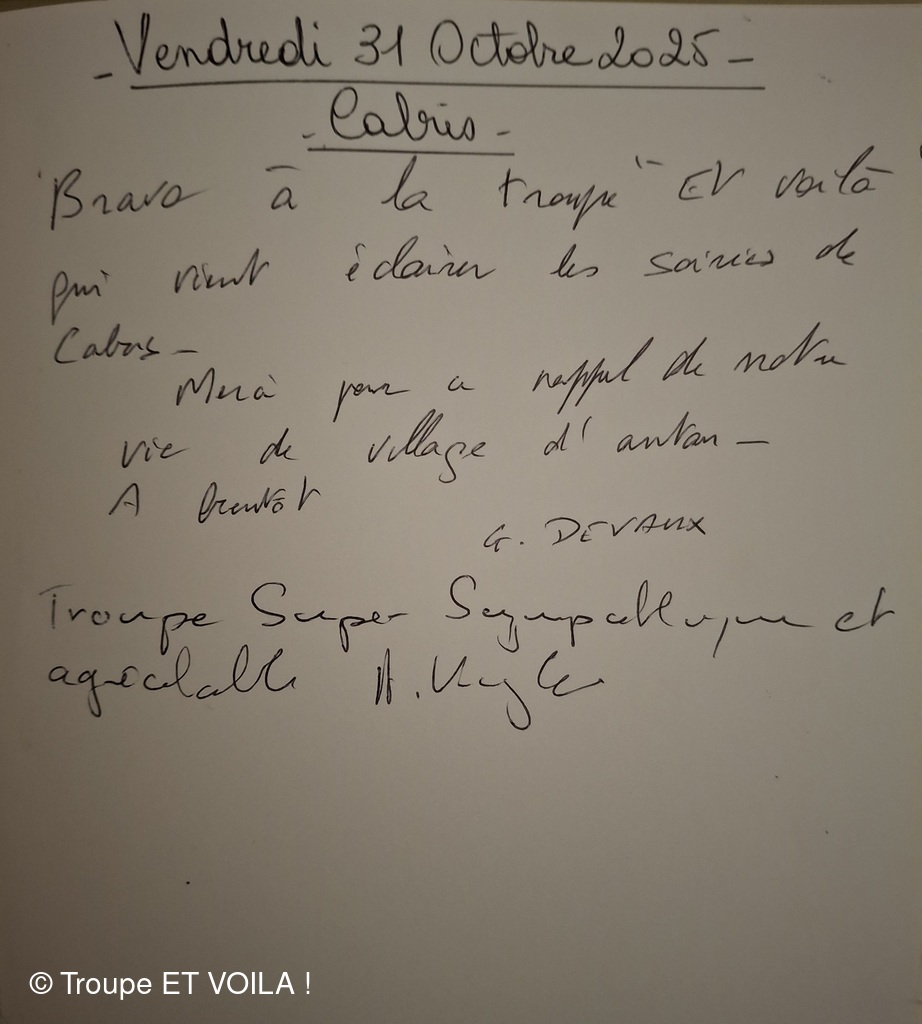 - Vendredi 31 Octobre 2025 -
- Cabris -
Bravo à la troupe "ET voilà
qui vient éclairer les soirées de
Cabris -
Merci pour ce rappel de notre
vie de village d'antan -
A bientôt
G. DEVAUX
Troupe Super Sympathique et
agréable A.
© Troupe ET VOILA !